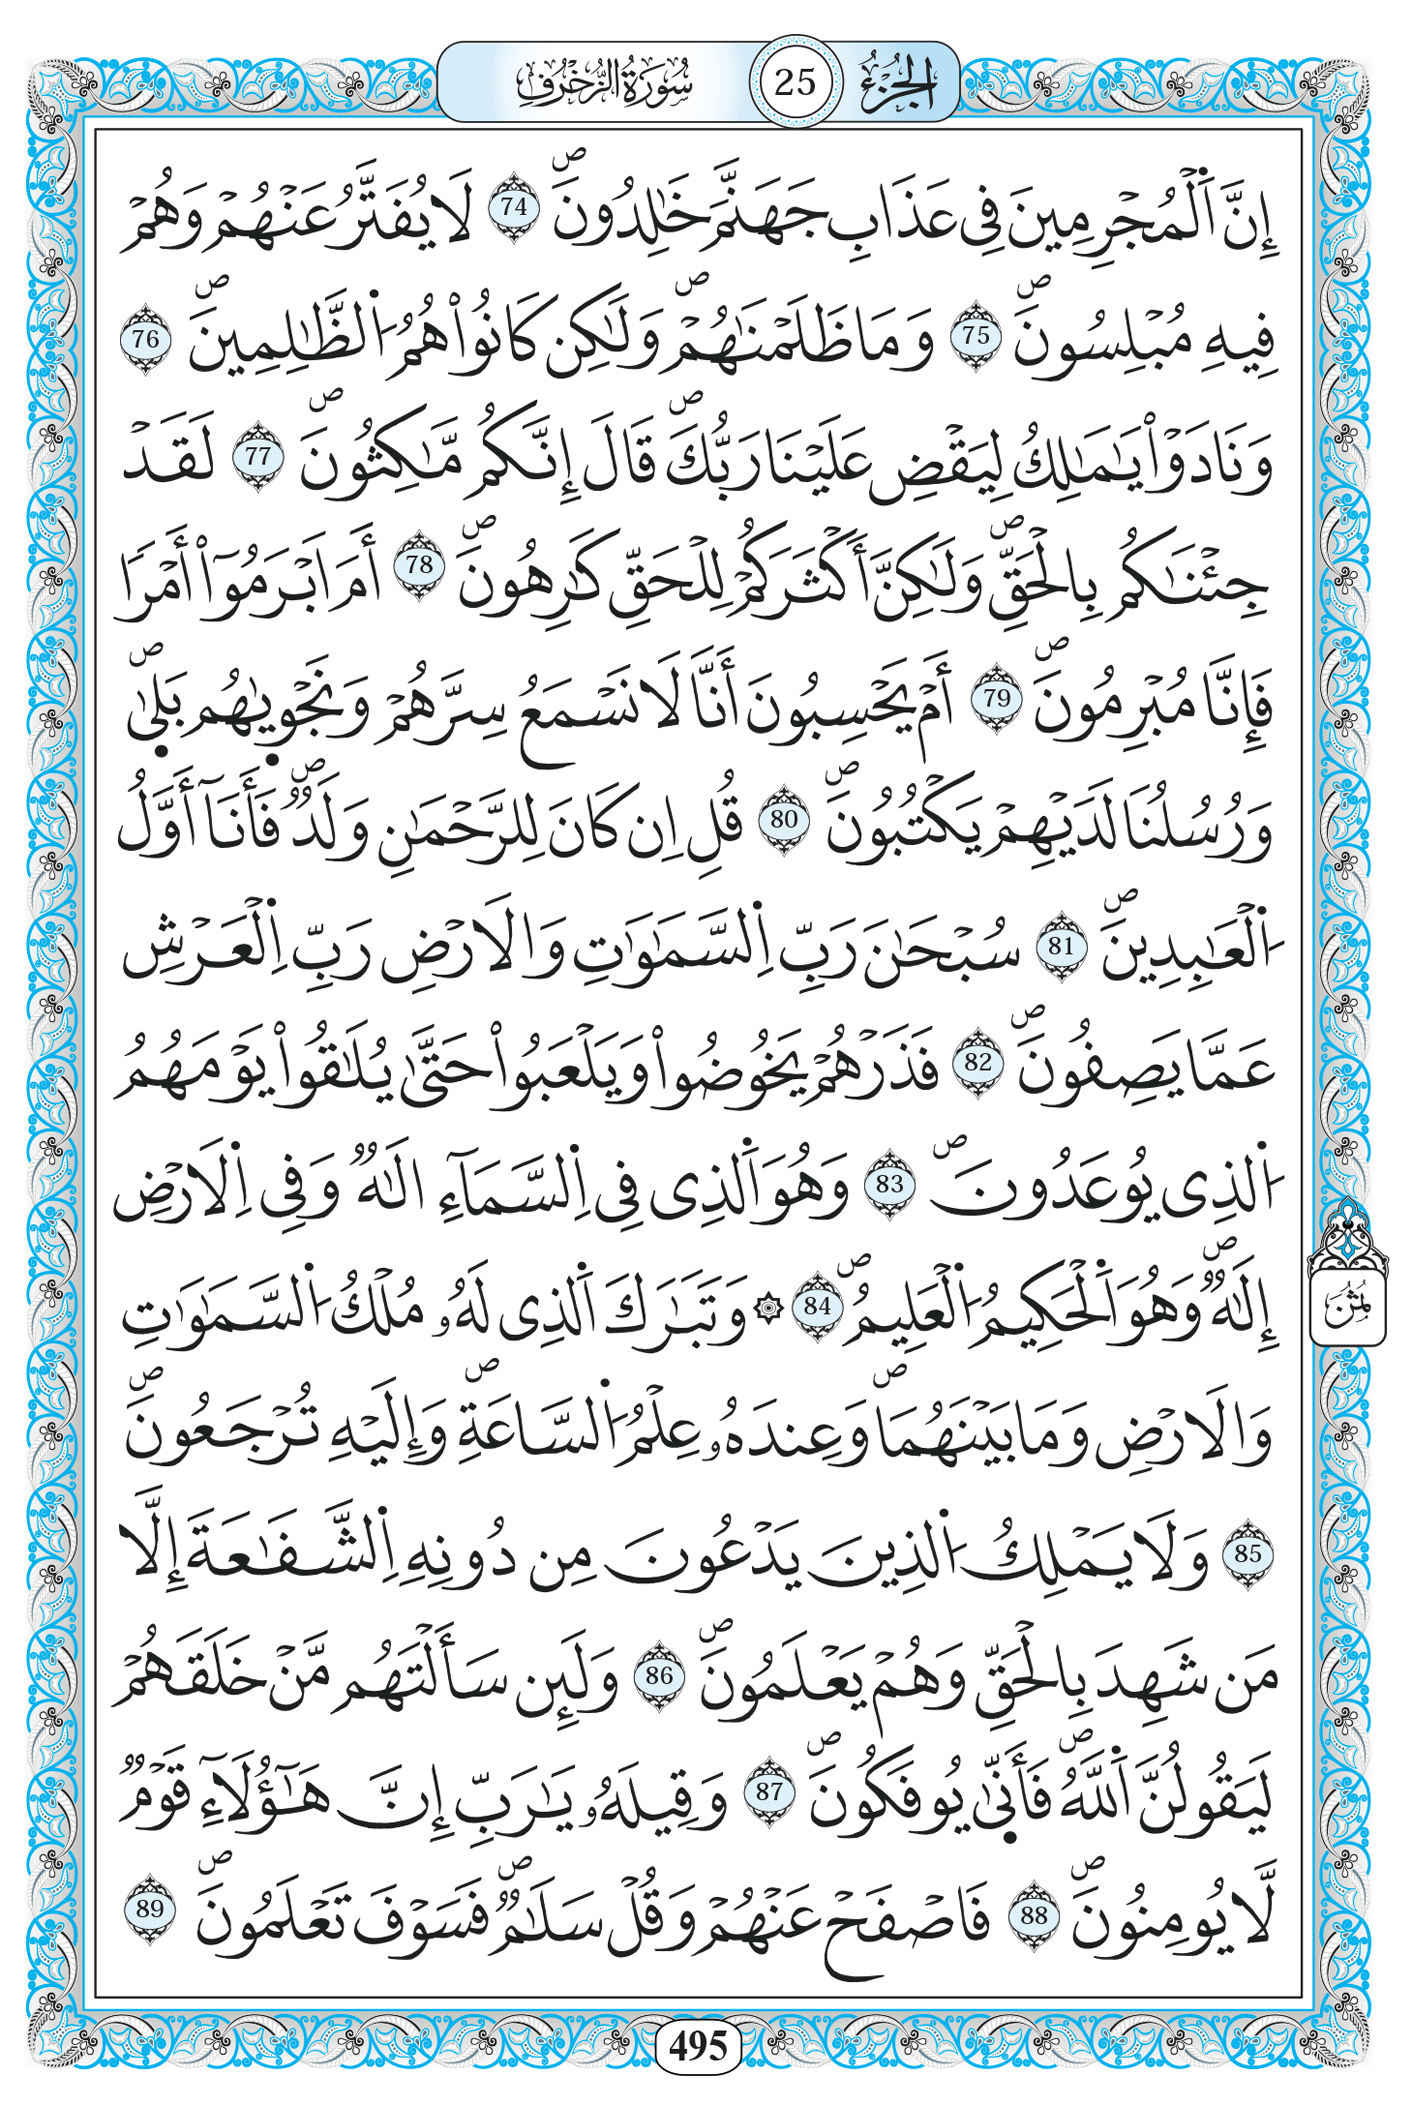 الجزء 25 سورة الزخرف
إِنَّ اَ۬لْمُجْرِمِينَ فِے عَذَابِ جَهَنَّمَ خَٰلِدُونَۖ 74 لَا يُفَتَّرُ عَنْهُمْ وَهُمْ
فِيهِ مُبْلِسُونَۖ 75 وَمَا ظَلَمْنَٰهُمْۖ وَلَٰكِن كَانُواْ هُمُ اُ۬لظَّٰلِمِينَۖ 76
وَنَادَوْاْ يَٰمَٰلِكُ لِيَقْضِ عَلَيْنَا رَبُّكَۖ قَالَ إِنَّكُم مَّٰكِثُونَۖ 77 لَقَدْ
جِئْنَٰكُم بِالْحَقِّۖ وَلَٰكِنَّ أَكْثَرَكُمْ لِلْحَقِّ كَٰرِهُونَۖ 78 أَمَ اَبْرَمُوٓاْ أَمْراٗ
فَإِنَّا مُبْرِمُونَۖ 79 أَمْ يَحْسِبُونَ أَنَّا لَا نَسْمَعُ سِرَّهُمْ وَنَجْو۪يٰهُم بَل۪يٰۖ
وَرُسُلُنَا لَدَيْهِمْ يَكْتُبُونَۖ 80 قُلِ اِن كَانَ لِلرَّحْمَٰنِ وَلَدٞۖ فَأَنَآ أَوَّلُ
اُ۬لْعَٰبِدِينَۖ 81 سُبْحَٰنَ رَبِّ اِ۬لسَّمَٰوَٰتِ وَالَارْضِ رَبِّ اِ۬لْعَرْشِ
عَمَّا يَصِفُونَۖ 82 فَذَرْهُمْ يَخُوضُواْ وَيَلْعَبُواْ حَتَّىٰ يُلَٰقُواْ يَوْمَهُمُ
اُ۬لذِے يُوعَدُونَۖ 83 وَهُوَ اَ۬لذِے فِے اِ۬لسَّمَآءِ الَٰهٞ وَفِے اِ۬لَارْضِ
إِلَٰهٞۖ وَهُوَ اَ۬لْحَكِيمُ اُ۬لْعَلِيمُۖ 84 ۞ وَتَبَٰرَكَ اَ۬لذِے لَهُۥ مُلْكُ اُ۬لسَّمَٰوَٰتِ
وَالَارْضِ وَمَا بَيْنَهُمَاۖ وَعِندَهُۥ عِلْمُ اُ۬لسَّاعَةِۖ وَإِلَيْهِ تُرْجَعُونَۖ
85 وَلَا يَمْلِكُ اُ۬لذِينَ يَدْعُونَ مِن دُونِهِ اِ۬لشَّفَٰعَةَ إِلَّا
مَن شَهِدَ بِالْحَقِّ وَهُمْ يَعْلَمُونَۖ 86 وَلَئِن سَأَلْتَهُم مَّنْ خَلَقَهُمْ
لَيَقُولُنَّ اَ۬للَّهُۖ فَأَنّ۪يٰ يُوفَكُونَۖ 87 وَقِيلَهُۥ يَٰرَبِّ إِنَّ هَٰٓؤُلَآءِ قَوْمٞ
لَّا يُومِنُونَۖ 88 فَاصْفَحْ عَنْهُمْ وَقُلْ سَلَٰمٞۖ فَسَوْفَ تَعْلَمُونَۖ 89
ثمن
495